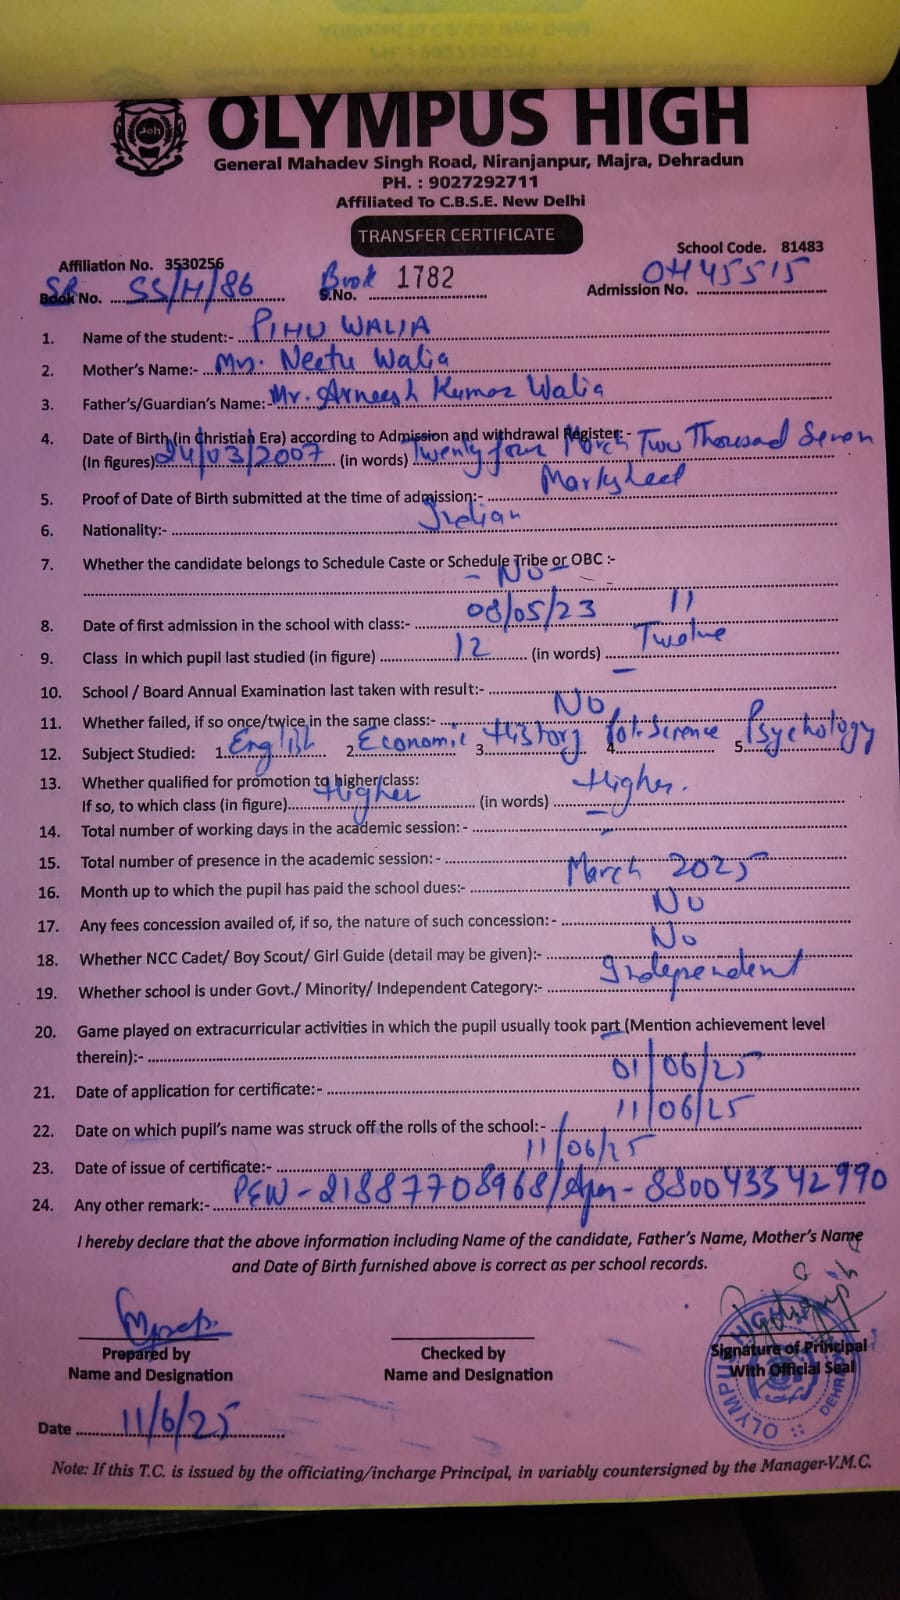 OLYMPUS HIGH
General Mahadev Singh Road, Niranjanpur, Majra, Dehradun
PH. : 9027292711
Affiliated To C.B.S.E. New Delhi
TRANSFER CERTIFICATE
Affiliation No. 3530256 School Code. 81483
SR Book No. SS/H/86 Book S.No. 1782 Admission No. OH45515
1. Name of the student:- PIHU WALIA
2. Mother's Name:- Mrs. Neetu Walia
3. Father's/Guardian's Name:- Mr. Arneesh Kumar Walia
4. Date of Birth (in Christian Era) according to Admission and withdrawal Register:-
(In figures) 24/03/2007 (in words) Twenty four March Two Thousand Seven
5. Proof of Date of Birth submitted at the time of admission:- Marksheet
6. Nationality:- Indian
7. Whether the candidate belongs to Schedule Caste or Schedule Tribe or OBC :-
- No -
8. Date of first admission in the school with class:- 08/05/23 11
9. Class in which pupil last studied (in figure) 12 (in words) Twelve
10. School / Board Annual Examination last taken with result:- -
11. Whether failed, if so once/twice in the same class:- No
12. Subject Studied: 1. English 2. Economic 3. History 4. Pol. Science 5. Psychology
13. Whether qualified for promotion to higher class:
If so, to which class (in figure) Higher (in words) Higher.
14. Total number of working days in the academic session: - -
15. Total number of presence in the academic session: -
16. Month up to which the pupil has paid the school dues:- March 2025
17. Any fees concession availed of, if so, the nature of such concession:- No
18. Whether NCC Cadet/ Boy Scout/ Girl Guide (detail may be given):- No
19. Whether school is under Govt./ Minority/ Independent Category:- Independent
20. Game played on extracurricular activities in which the pupil usually took part (Mention achievement level
therein):- -
21. Date of application for certificate:- 01/06/25
22. Date on which pupil's name was struck off the rolls of the school:- 11/06/25
23. Date of issue of certificate:- 11/06/25
24. Any other remark:- PEN-21887708968/Apar-880043342990
I hereby declare that the above information including Name of the candidate, Father's Name, Mother's Name
and Date of Birth furnished above is correct as per school records.
Prepared by Checked by Signature of Principal
Name and Designation Name and Designation With Official Seal
Date 11/6/25
Note: If this T.C. is issued by the officiating/incharge Principal, in variably countersigned by the Manager-V.M.C.